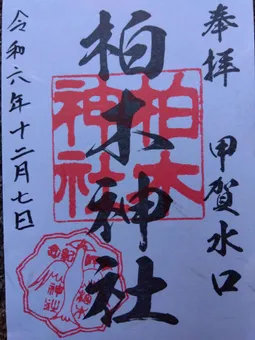 奉拝 甲賀水口
柏木神社
柏木
神社
令和六年十二月七日